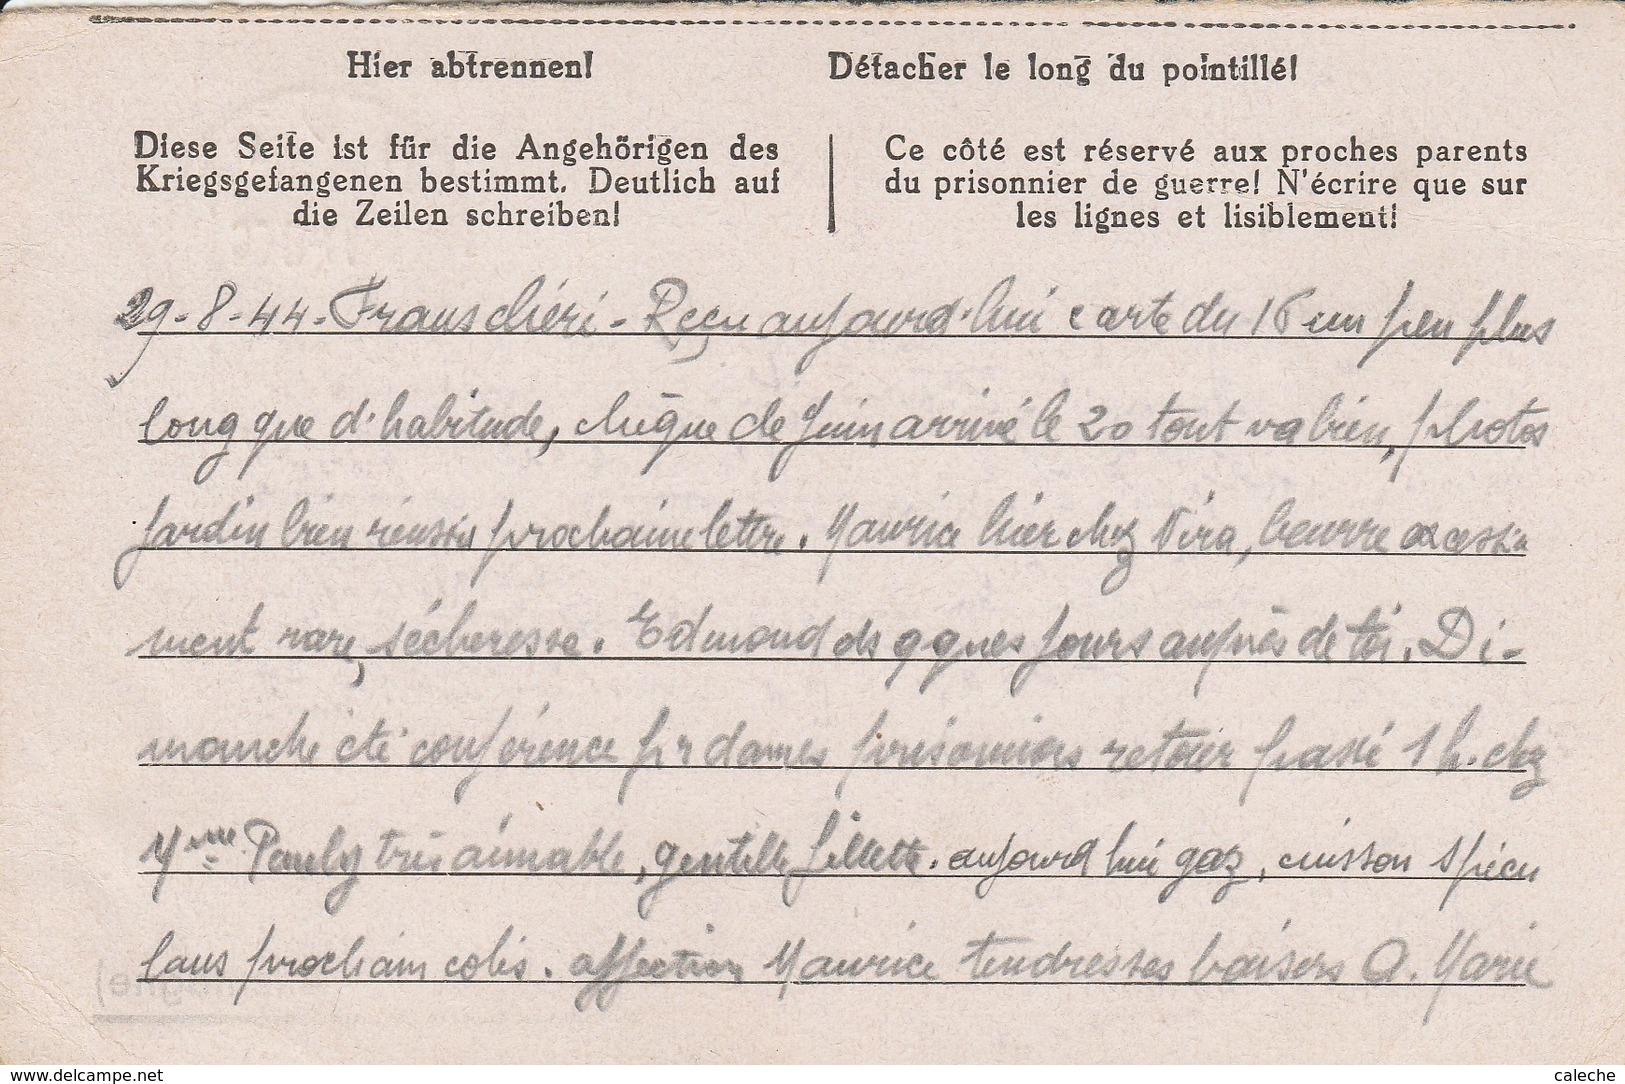 Hier abtrennen!
Détacher le long du pointillé!
Diese Seite ist für die Angehörigen des
Kriegsgefangenen bestimmt. Deutlich auf
die Zeilen schreiben!
Ce côté est réservé aux proches parents
du prisonnier de guerre! N'écrire que sur
les lignes et lisiblement!
29-8-44- Frans chéri - Reçu aujourd'hui carte du 16 un peu plus
long que d'habitude, chèque de juin arrivé le 20 tout va bien, photos
jardin bien réussis prochaine lettre. Maurice hier chez Nira, beurre excessi
ment rare, sécheresse. Edmond ds qques jours auprès de toi. Di-
manche été conférence pr dames prisonniers retour passé 1 h. chez
Mme Pauly très aimable, gentille fillette. aujourd'hui gaz, cuisson spécu
laus prochain colis. affection Maurice tendresses baisers A. Marie
www.delcampe.net
caleche